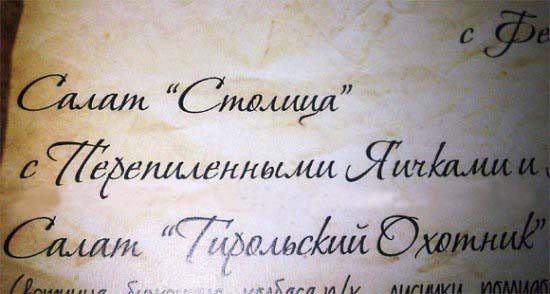 с Фе
Салат "Столица"
с Перепиленными Яичками и
Салат "Тирольский Охотник"
колбаса п/к, лисички, помидо